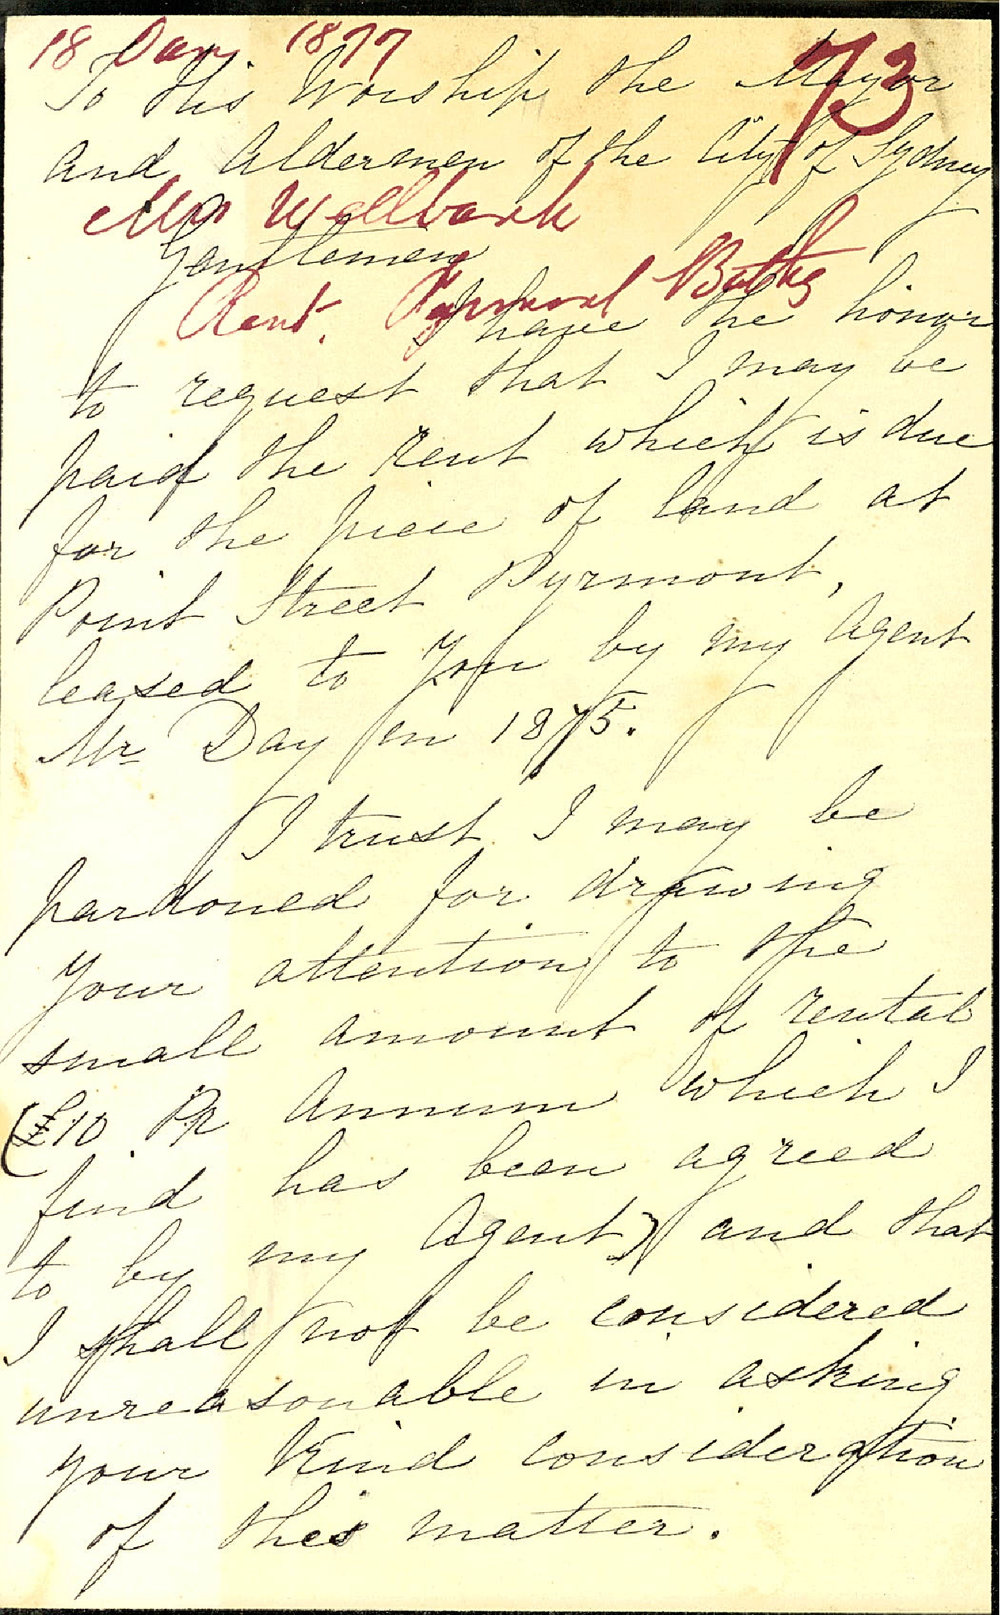 18 Jany 1877
73
To His Worship the Mayor
and Aldermen of the City of Sydney
Mrs Wellbank
Gentlemen
Rent. Pyrmont Baths
I have the honor
to request that I may be
paid the rent which is due
for the piece of land at
Point Street Pyrmont,
leased to you by my Agent
Mr Day in 1875.
I trust I may be
pardoned for drawing
your attention to the
small amount of rental
(£10 Pr Annum which I
find has been agreed
to by my Agent) and that
I shall not be considered
unreasonable in asking
your kind consideration
of this matter.